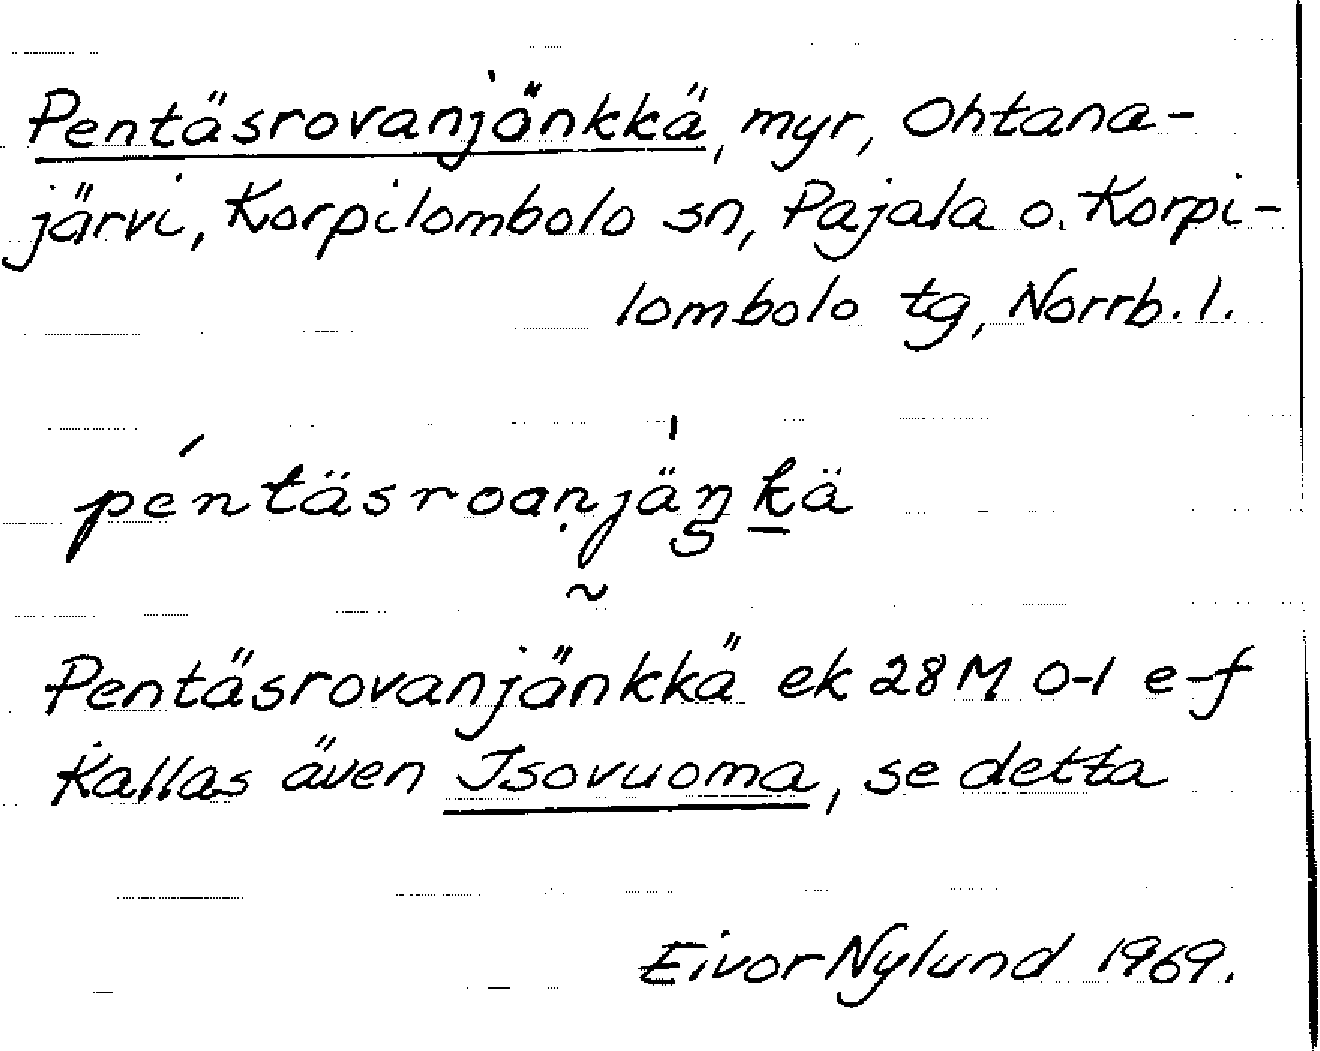 Pentäsrovanjänkkä, myr, Ohtana-
järvi, Korpilombolo sn, Pajala o. Korpi-
lombolo tg, Norrb. l.
péntäsroaṇjä́ŋ̱ḵä
Pentäsrovanjänkkä ek 28 M 0-1 e-f
Kallas även Isovuoma, se detta
Eivor Nylund 1969.